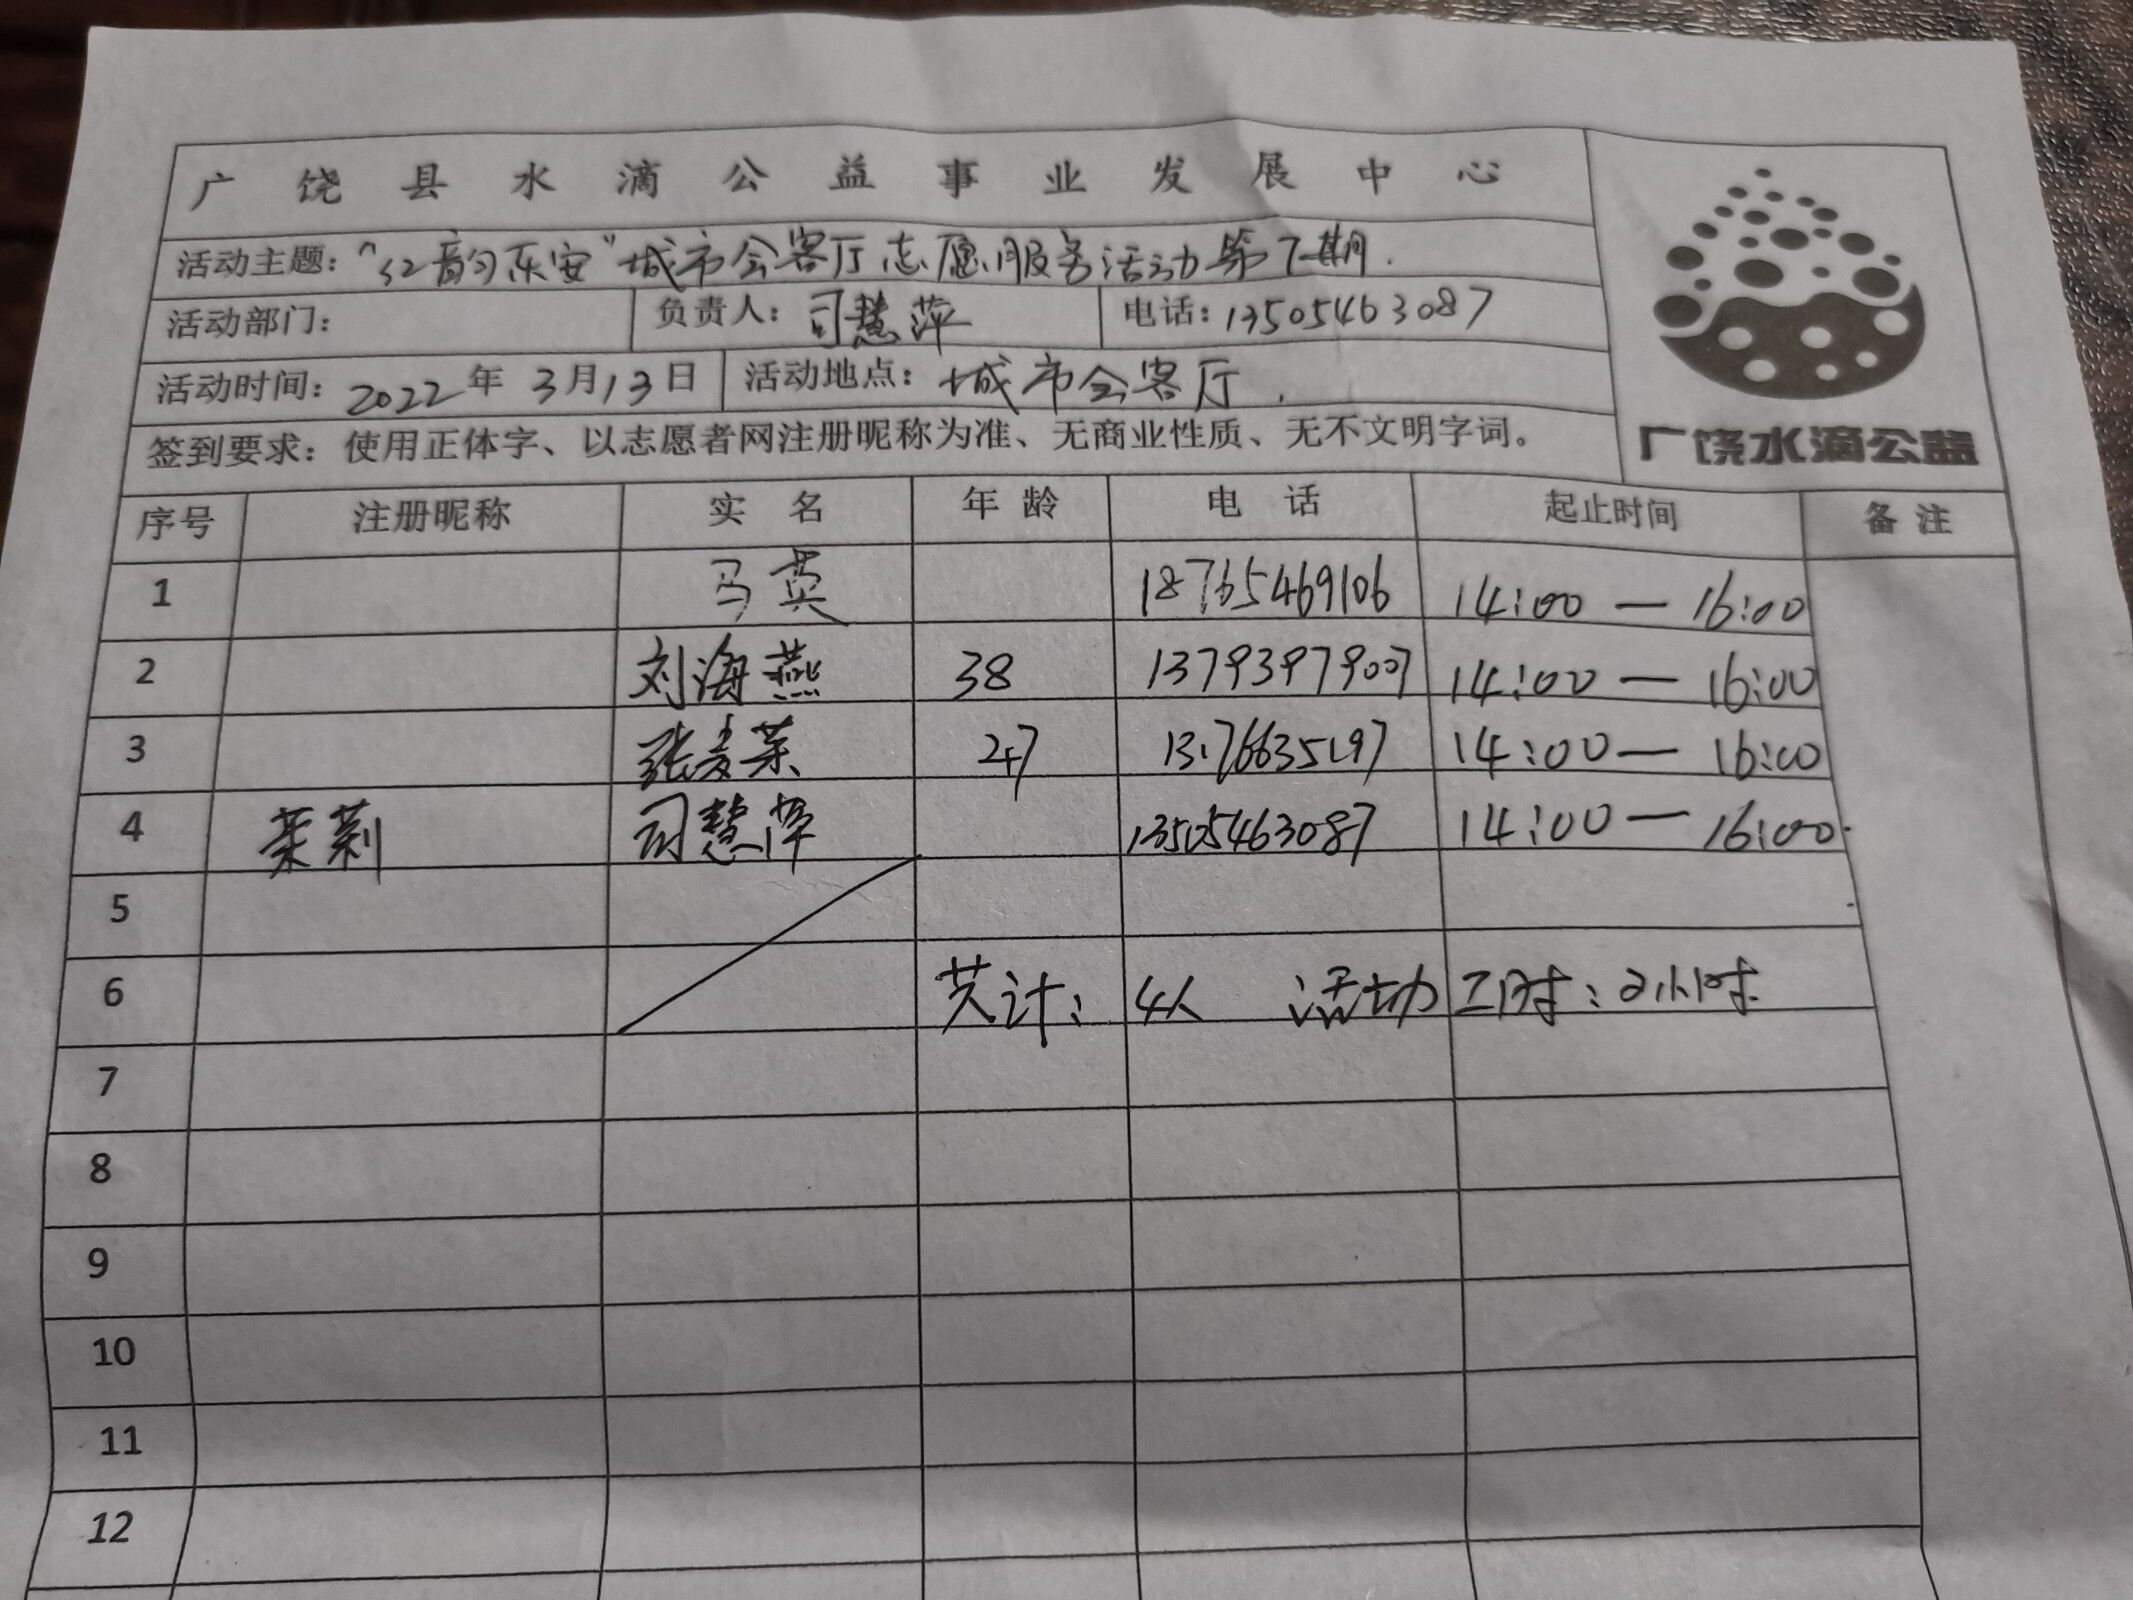 广饶县水滴公益事业发展中心
活动主题：“红韵乐安”城市会客厅志愿服务活动第7期.
活动部门： 负责人：司慧萍 电话：13505463087
活动时间：2022年3月13日 活动地点：城市会客厅.
签到要求：使用正体字、以志愿者网注册昵称为准、无商业性质、无不文明字词。
广饶水滴公益
序号 注册昵称 实名 年龄 电话 起止时间 备注
1 马英 18765469106 14:00—16:00
2 刘海燕 38 13793979007 14:00—16:00
3 47 14:00—16:00
4 茉莉 司慧萍 13505463087 14:00—16:00
5
6 共计：4人 活动工时：2小时
7
8
9
10
11
12